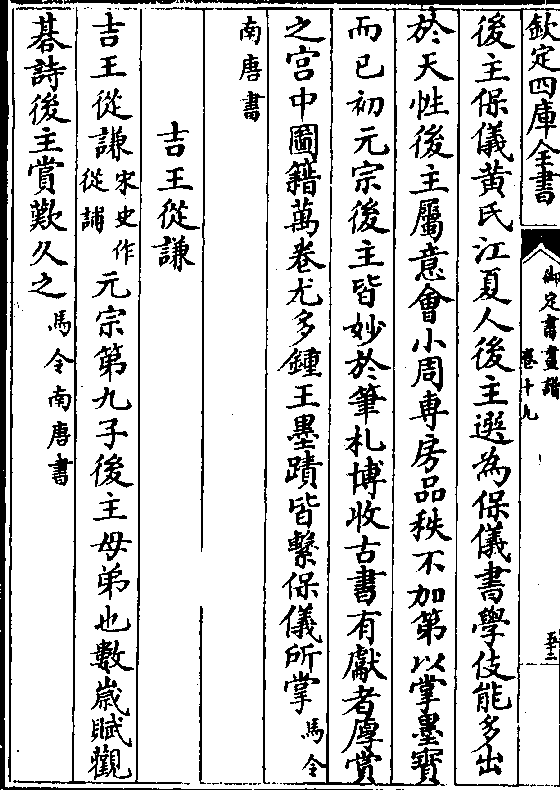 欽定四庫全書
御定書畫譜
卷十九
五十二
後主保儀黄氏江夏人後主選為保儀書學伎能多出
於天性後主屬意會小周專房品秩不加第以掌墨寶
而已初元宗後主皆妙於筆札博收古書有獻者厚賞
之宫中圖籍萬卷尤多鍾王墨蹟皆繫保儀所掌馬令
南唐書
吉王從謙
吉王從謙宋史作從誧元宗第九子後主母弟也數歳賦觀
碁詩後主賞歎久之馬令南唐書